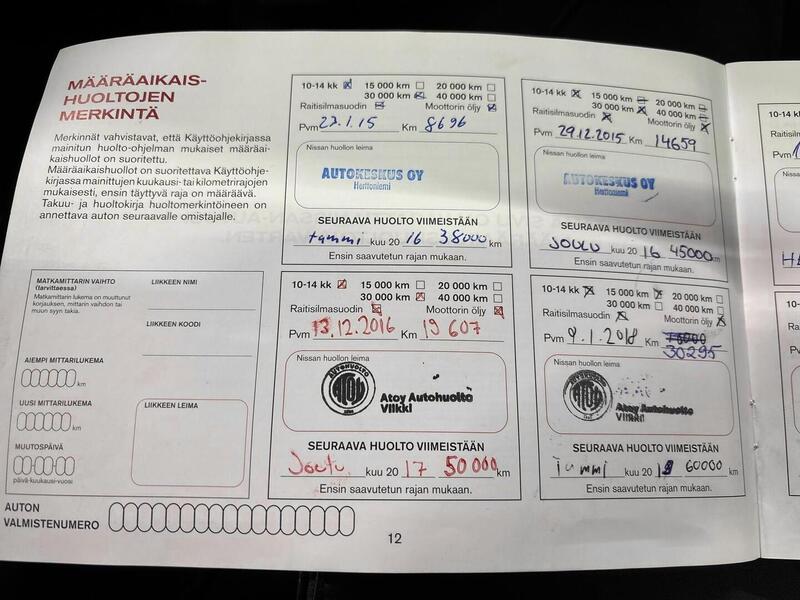 MÄÄRÄAIKAIS-
HUOLTOJEN
MERKINTÄ
Merkinnät vahvistavat, että Käyttöohjekirjassa
mainitun huolto-ohjelman mukaiset määräai-
kaishuollot on suoritettu.
Määräaikaishuollot on suoritettava Käyttöohje-
kirjassa mainittujen kuukausi- tai kilometrirajojen
mukaisesti, ensin täyttyvä raja on määräävä.
Takuu- ja huoltokirja huoltomerkintöineen on
annettava auton seuraavalle omistajalle.
MATKAMITTARIN VAIHTO
(tarvittaessa)
Matkamittarin lukema on muuttunut
korjauksen, mittarin vaihdon tai
muun syyn takia.
AIEMPI MITTARILUKEMA
km
UUSI MITTARILUKEMA
km
MUUTOSPÄIVÄ
päivä-kuukausi-vuosi
LIIKKEEN NIMI
LIIKKEEN KOODI
LIIKKEEN LEIMA
AUTON
VALMISTENUMERO
10-14 kk 15 000 km 20 000 km
30 000 km 40 000 km
Raitisilmasuodin Moottorin öljy
Pvm 22.1.15 Km 8696
Nissan huollon leima
AUTOKESKUS OY
Herttoniemi
SEURAAVA HUOLTO VIIMEISTÄÄN
tammi kuu 20 16 38000 km
Ensin saavutetun rajan mukaan.
10-14 kk 15 000 km 20 000 km
30 000 km 40 000 km
Raitisilmasuodin Moottorin öljy
Pvm 29.12.2015 Km 14659
Nissan huollon leima
AUTOKESKUS OY
Herttoniemi
SEURAAVA HUOLTO VIIMEISTÄÄN
JOULU kuu 20 16 45000 km
Ensin saavutetun rajan mukaan.
10-14 kk 15 000 km 20 000 km
30 000 km 40 000 km
Raitisilmasuodin Moottorin öljy
Pvm 13.12.2016 Km 19 607
Nissan huollon leima
AUTOHUOLTO
ATOY
Atoy Autohuolto
Viikki
SEURAAVA HUOLTO VIIMEISTÄÄN
Joulu kuu 20 17 50 000 km
Ensin saavutetun rajan mukaan.
10-14 kk 15 000 km 20 000 km
30 000 km 40 000 km
Raitisilmasuodin Moottorin öljy
Pvm 9.1.2018 Km
30295
Nissan huollon leima
Atoy Autohuolto
Viikki
SEURAAVA HUOLTO VIIMEISTÄÄN
tammi kuu 20 19 60000 km
Ensin saavutetun rajan mukaan.
12